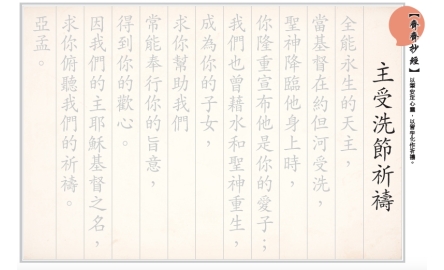 【齊齊抄經】
以筆安定心靈，以習字化作祈禱。
主受洗節祈禱
全能永生的天主，
當基督在約但河受洗，
聖神降臨他身上時，
你隆重宣布他是你的愛子；
我們也曾藉水和聖神重生，
成為你的子女，
求你幫助我們
常能奉行你的旨意，
得到你的歡心。
因我們的主耶穌基督之名，
求你俯聽我們的祈禱。
亞孟。